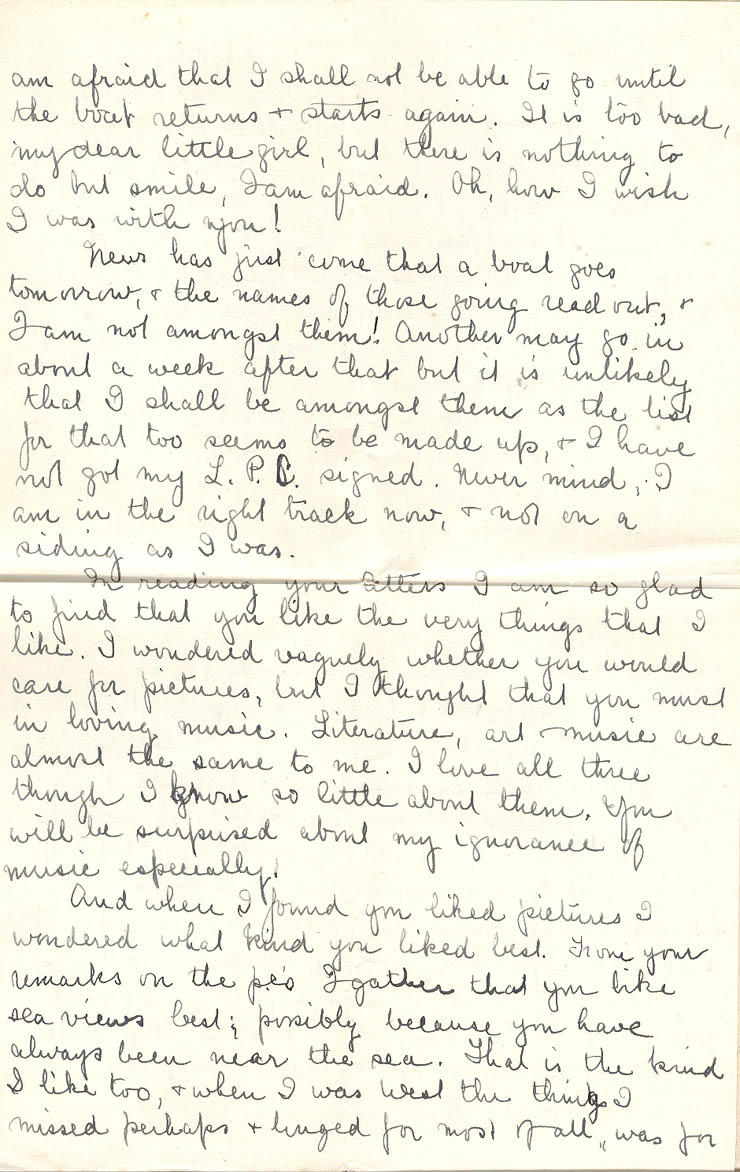 am afraid that I shall not be able to go until
the boat returns & starts again. It is too bad,
my dear little girl, but there is nothing to
do but smile, I am afraid. Oh, how I wish
I was with you!
News has just come that a boat goes
tomorrow, & the names of those going read out, &
I am not amongst them! Another may go in
about a week after that but it is unlikely
that I shall be amongst them as the list
for that too seems to be made up, & I have
not got my L. P. C. signed. Never mind, I
am in the right track now, & not on a
siding as I was.
In reading your letters I am so glad
to find that you like the very things that I
like. I wondered vaguely whether you would
care for pictures, but I thought that you must
in loving music. Literature, art & music are
almost the same to me. I love all three
though I know so little about them. You
will be surprised about my ignorance of
music especially!
And when I found you liked pictures I
wondered what kind you liked best. From your
remarks on the pcs I gather that you like
sea views best; possibly because you have
always been near the sea. That is the kind
I like too, & when I was West the things I
missed perhaps & longed for most of all, was for